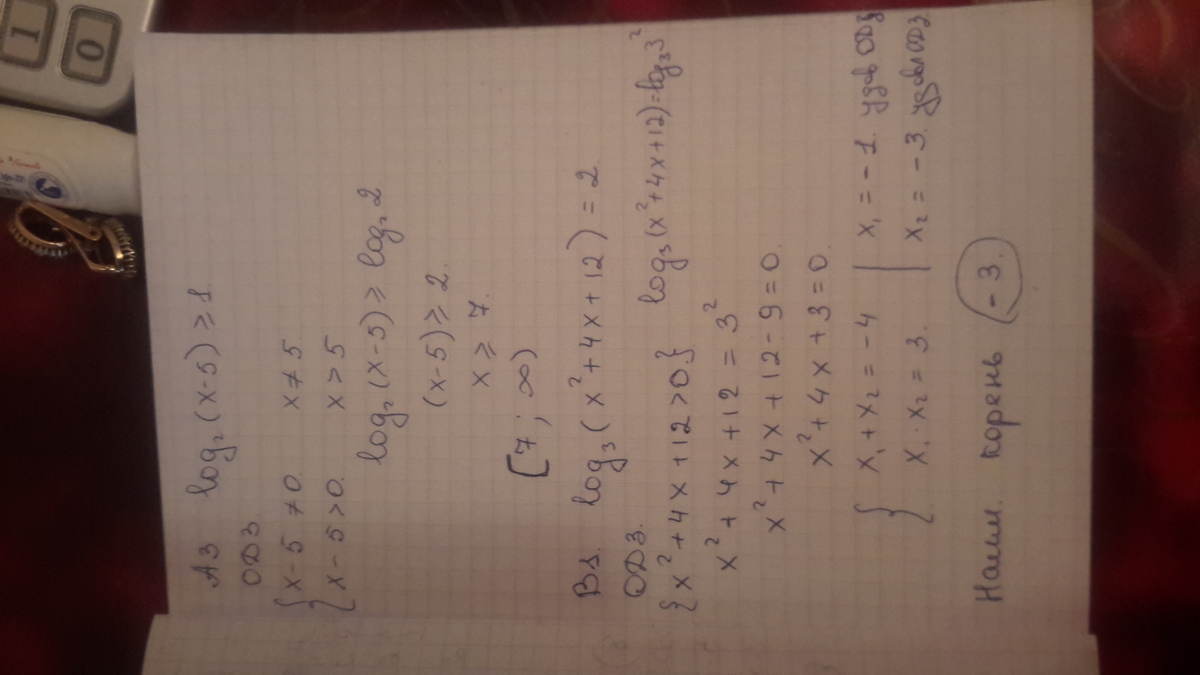 А3 log₂(x-5)≥1.
ОДЗ
{x-5≠0. x≠5
{x-5>0. x>5
log₂(x-5)≥log₂2
(x-5)≥2.
x≥7.
[7; ∞)
В1. log₃(x²+4x+12)=2.
ОДЗ.
{x²+4x+12>0.} log₃(x²+4x+12)=log₃3²
x²+4x+12=3²
x²+4x+12-9=0.
x²+4x+3=0.
{x₁+x₂=-4 | x₁=-1. удов ОДЗ
{x₁·x₂=3. | x₂=-3. удовл ОДЗ.
Наим. корень -3.
1
0